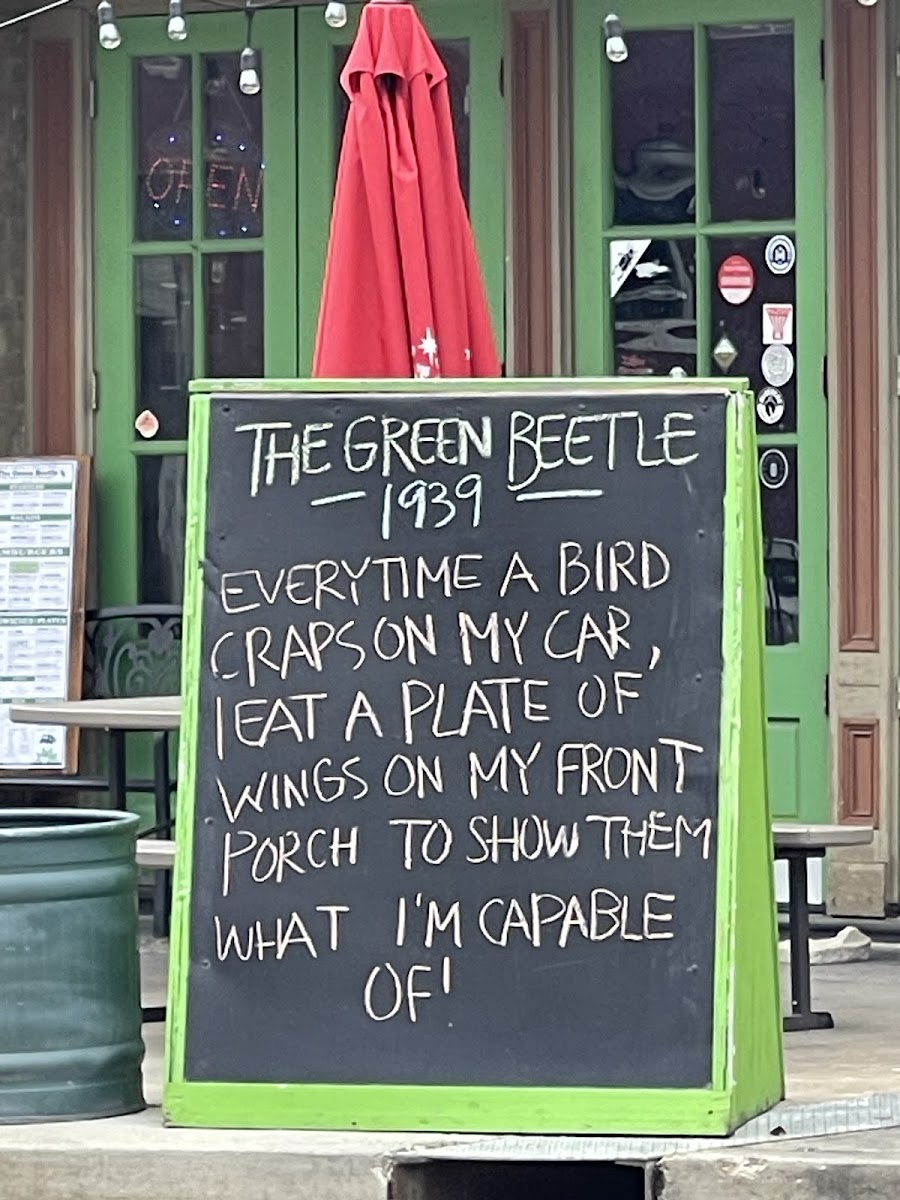 OPEN
THE GREEN BEETLE
1939
EVERYTIME A BIRD
CRAPS ON MY CAR,
I EAT A PLATE OF
WINGS ON MY FRONT
PORCH TO SHOW THEM
WHAT I'M CAPABLE
OF!
The Green Beetle